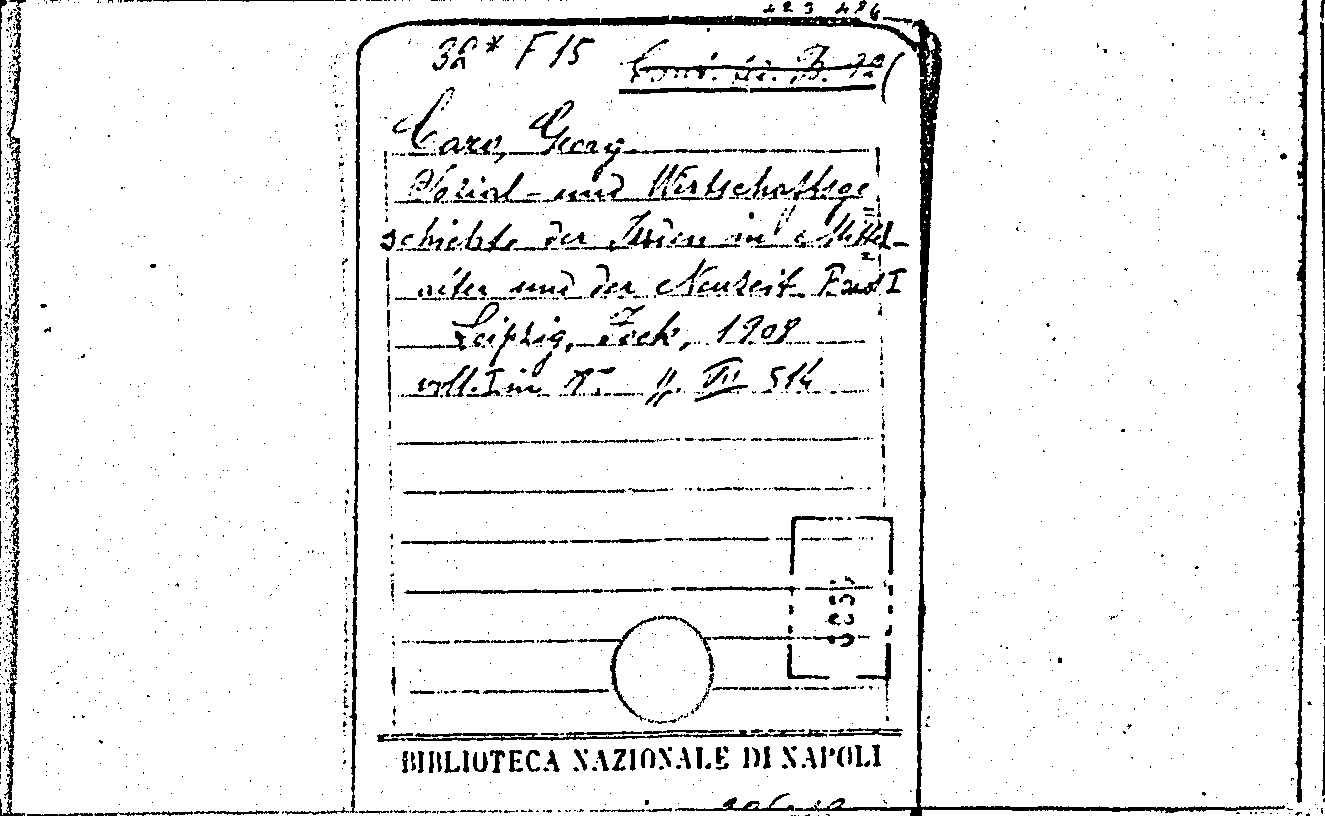 32* F 15
Caro, Georg
Sozial- und Wirtschaftsge
schichte der Juden im Mittel-
alter und der Neuzeit. Band I
Leipzig, Fock, 1908
voll. I in 8° pp. VII 514
BIBLIOTECA NAZIONALE DI NAPOLI